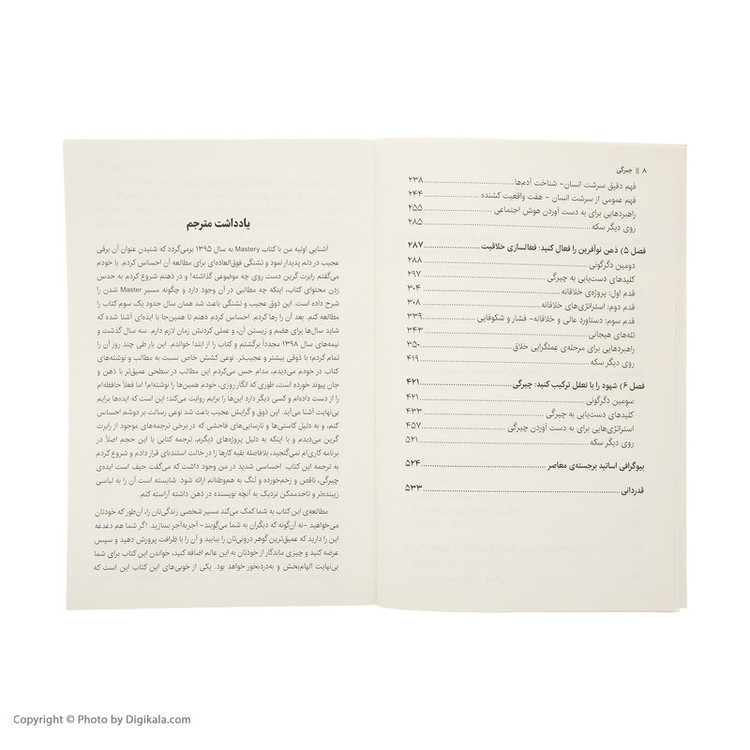 ۸ || چیرگی
فهم دقیق سرشت انسان- شناخت آدم‌ها ۲۳۸
فهم عمومی از سرشت انسان - هفت واقعیت کشنده ۲۴۴
راهبردهایی برای به دست آوردن هوش اجتماعی ۲۵۵
روی دیگر سکه ۲۸۵
فصل ۵) ذهن نوآفرین را فعال کنید: فعالسازی خلاقیت ۲۸۷
دومین دگرگونی ۲۸۸
کلیدهای دست‌یابی به چیرگی ۲۹۷
قدم اول: پروژه‌ی خلاقانه ۳۰۴
قدم دوم: استراتژی‌های خلاقانه ۳۰۸
قدم سوم: دستاورد عالی و خلاقانه- فشار و شکوفایی ۳۳۹
تله‌های هیجانی ۳۴۳
راهبردهایی برای مرحله‌ی عملگرایی خلاق ۳۵۰
روی دیگر سکه ۴۱۹
فصل ۶) شهود را با تعقل ترکیب کنید: چیرگی ۴۲۱
سومین دگرگونی ۴۲۱
کلیدهای دست‌یابی به چیرگی ۴۳۳
استراتژی‌هایی برای به دست آوردن چیرگی ۴۵۷
روی دیگر سکه ۵۲۱
بیوگرافی اساتید برجسته‌ی معاصر ۵۲۴
قدردانی ۵۳۳
یادداشت مترجم
آشنایی اولیه من با کتاب Mastery به سال ۱۳۹۵ برمی‌گردد که شنیدن عنوان آن برقی
عجیب در دلم پدیدار نمود و تشنگی فوق‌العاده‌ای برای مطالعه آن احساس کردم. با خودم
می‌گفتم رابرت گرین دست روی چه موضوعی گذاشته! و در ذهنم شروع کردم به حدس
زدن محتوای کتاب، اینکه چه مطالبی در آن وجود دارد و چگونه مسیر Master شدن را
شرح داده است. این ذوق عجیب و تشنگی باعث شد همان سال حدود یک سوم کتاب را
مطالعه کنم. بعد آن را رها کردم. احساس کردم ذهنم تا همین‌جا با ایده‌ای آشنا شده که
شاید سال‌ها برای هضم و زیستن آن، و عملی کردنش زمان لازم دارم. سه سال گذشت و
نیمه‌های سال ۱۳۹۸ مجدداً برگشتم و کتاب را از ابتدا خواندم. این بار طی چند روز آن را
تمام کردم؛ با ذوقی بیشتر و عجیب‌تر. نوعی کشش خاص نسبت به مطالب و نوشته‌های
کتاب در خودم می‌دیدم، مدام حس می‌کردم این مطالب در سطحی عمیق‌تر با ذهن و
جان پیوند خورده است، طوری که انگار روزی، خودم همین‌ها را نوشته‌ام! اما فعلاً حافظه‌ام
را از دست داده‌ام و کسی دیگر دارد این‌ها را برایم روایت می‌کند؛ این است که ایده‌ها برایم
بی‌نهایت آشنا می‌آید. این ذوق و گرایش عجیب باعث شد نوعی رسالت بر دوشم احساس
کنم، و به دلیل کاستی‌ها و نارسایی‌های فاحشی که در برخی ترجمه‌های موجود از رابرت
گرین می‌دیدم و با اینکه به دلیل پروژه‌های دیگرم، ترجمه کتابی با این حجم اصلاً در
برنامه کاری‌ام نمی‌گنجید، بلافاصله بقیه کارها را در حالت استندبای قرار دادم و شروع کردم
به ترجمه این کتاب. احساسی شدید در من وجود داشت که می‌گفت حیف است ایده‌ی
چیرگی، ناقص و زخم‌خورده و لنگ به هم‌وطنانم ارائه شود. شایسته است آن را به لباسی
زیبنده‌تر و تاحدممکن نزدیک به آنچه نویسنده در ذهن داشته آراسته کنم.
مطالعه‌ی این کتاب به شما کمک می‌کند مسیر شخصی زندگی‌تان را، آن‌طور که خودتان
می‌خواهید -نه آن‌گونه که دیگران به شما می‌گویند- آجربه‌آجر بسازید. اگر شما هم دغدغه
این را دارید که عمیق‌ترین گوهر درونی‌تان را بیابید و آن را با ظرافت پرورش دهید و سپس
عرضه کنید و چیزی ماندگار از خودتان به این عالم اضافه کنید، خواندن این کتاب برای شما
بی‌نهایت الهام‌بخش و به‌دردبخور خواهد بود. یکی از خوبی‌های این کتاب این است که
Copyright © Photo by Digikala.com